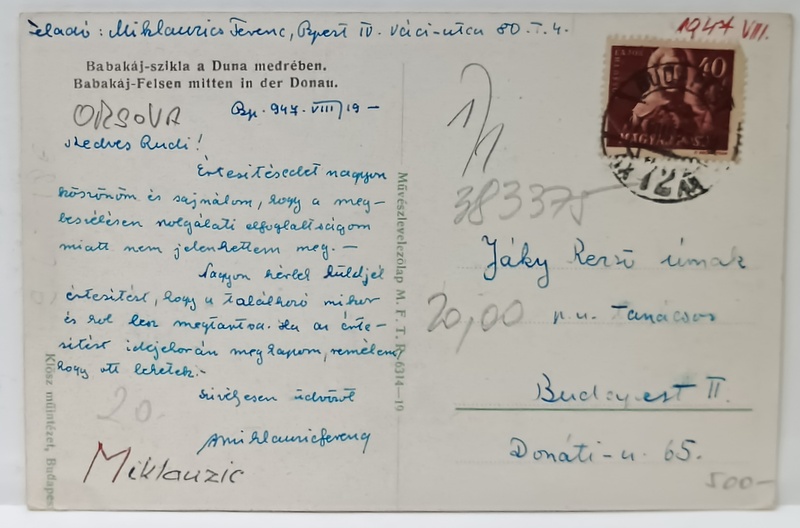 Feladó: Miklauzics Ferenc, Bpest IV. Váci-utca 80. I. 4.
1947 VIII.
Babakáj-szikla a Duna medrében.
Babakáj-Felsen mitten in der Donau.
ORSOVA
Bp. 947. VIII/19 –
Kedves Rudi!
Értesitésedet nagyon
köszönöm és sajnálom, hogy a meg-
beszélésen szolgálati elfoglaltságom
miatt nem jelenhettem meg. –
Nagyon kérlek küldjél
értesitést, hogy a találkozó mikor
és hol lesz megtartva. Ha az érte-
sitést idejekorán megkapom, remélem
hogy ott lehetek. –
Szivélyesen üdvözöl
Miklauzics Ferenc
Miklauzic
20.
Klösz müintézet, Budapest
Művészlevelezőlap M. F. T. R. 6314—19
40
MAGYAR
72
383375
20,00
Jáky Rezső úrnak
p.u. tanácsos
Budapest II.
Donáti-u. 65.
500–